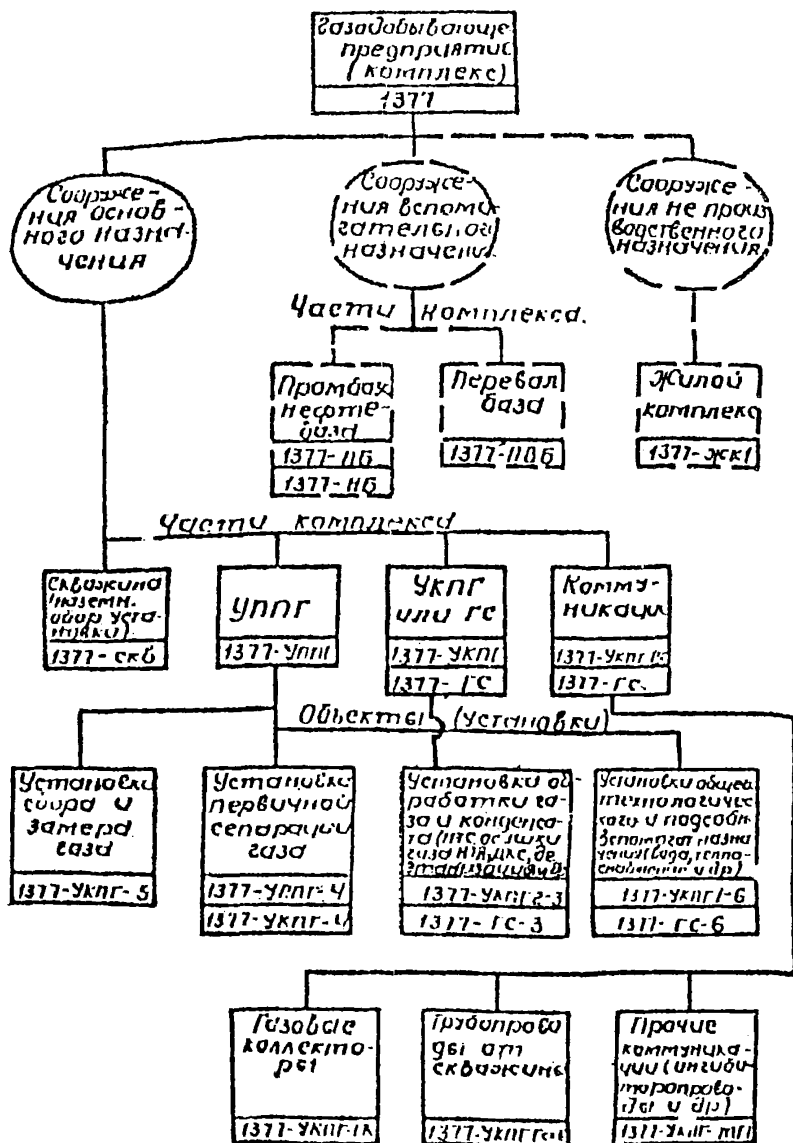 Газодобывающе
предприятие
(комплекс)
1377
Сооруже-
ния основ-
ного назна-
чения
Сооруже-
ния вспомо-
гательного
назначени
Сооруже-
ния не произ
водственного
назначения
Части комплекса.
Промбаза
нефте-
база
1377-ПБ
1377-НБ
Перевал
база
1377-ПВБ
Жилой
комплекс
1377-ЖК1
Части комплекса
Скважина
(наземн.
обор уста-
новки)
1377-скв
УППГ
1377-УППГ
УКПГ
или ГС
1377-УКПГ
1377-ГС
Комму-
никации
1377-УКПГ
1377-ГС.
Объекты (установки)
Установки
сбора и
замера
газа
1377-УКПГ-5
Установки
первичной
сепарации
газа
1377-УППГ-4
1377-УКПГ-
Установки об-
работки га-
за и конденса-
та
газа
1377-УКПГ2-3
1377-ГС-3
Установки общего
технологичес-
кого и подсобн.
вспомогат назна-
чения (вода, тепло-
снабжение и др)
1377-УКПГ1-6
1377-ГС-6
Газовые
коллекто-
ры
1377-УКПГ-ГК
Трубопрово
ды от
скважины
1377-УКПГ
Прочие
коммуника-
ции (ингиби-
торопрово-
ды и др)
1377-УКПГ-МП